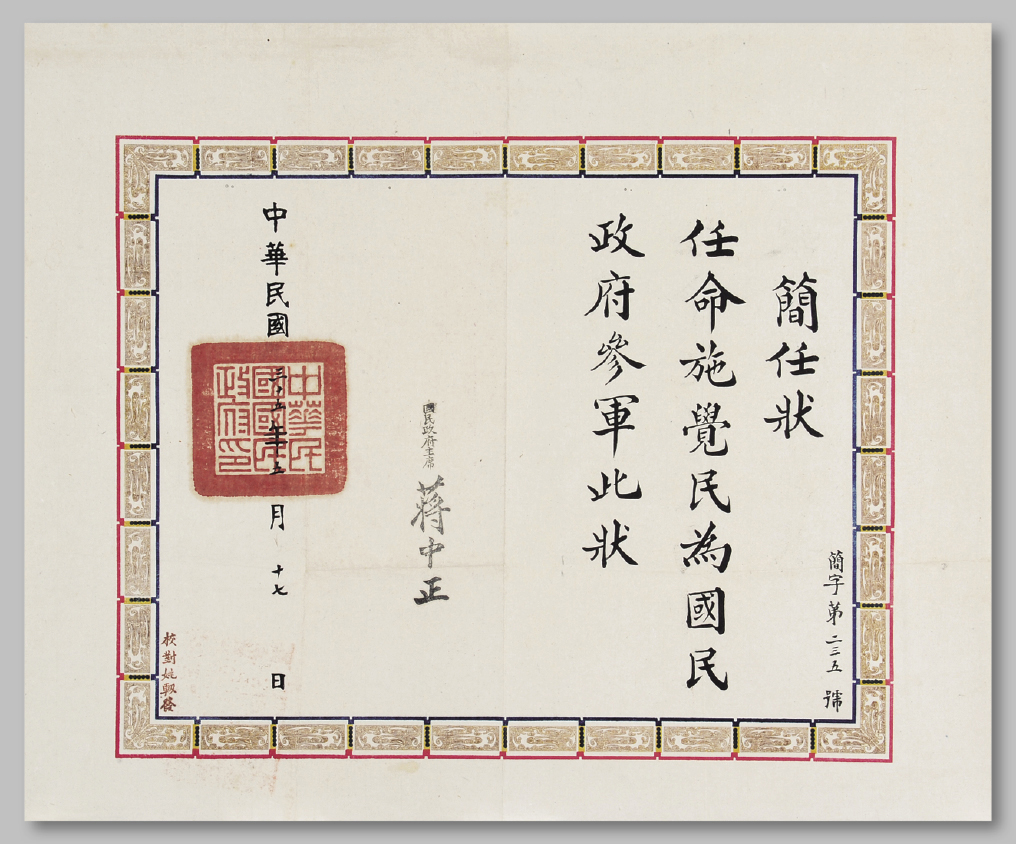 簡字第二三五號
簡任狀
任命施覺民為國民
政府參軍此狀
國民政府主席
蔣中正
中華民國三十五年五月十七日
中華民
國國民
政府印
校對姚